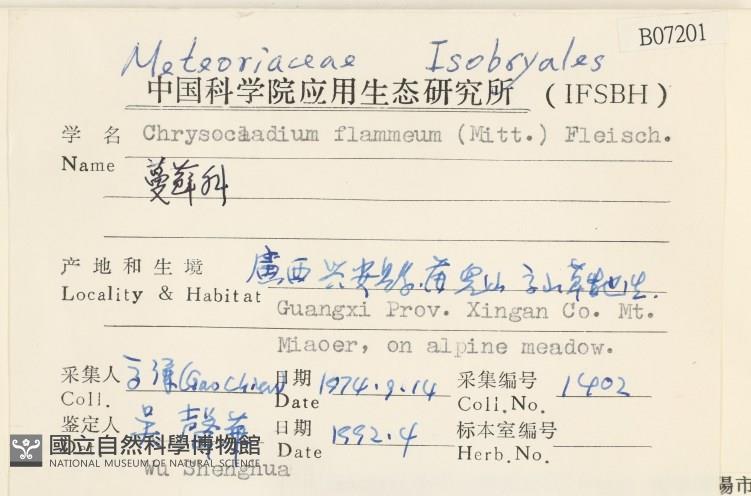 B07201
Meteoriaceae Isobryales
中国科学院应用生态研究所 (IFSBH)
学名 Chrysocladium flammeum (Mitt.) Fleisch.
Name
蔓蘚科
产地和生境 廣西兴安縣苗兒山高山草地生.
Locality & Habitat
Guangxi Prov. Xingan Co. Mt.
Miaoer, on alpine meadow.
采集人 高谦 (Gao Chien) 日期 1974.9.14 采集编号 1402
Coll. Date Coll.No.
鉴定人 日期 1992.4 标本室编号
Date Herb.No.
國立自然科學博物館
NATIONAL MUSEUM OF NATURAL SCIENCE
Wu Shenghua
易市